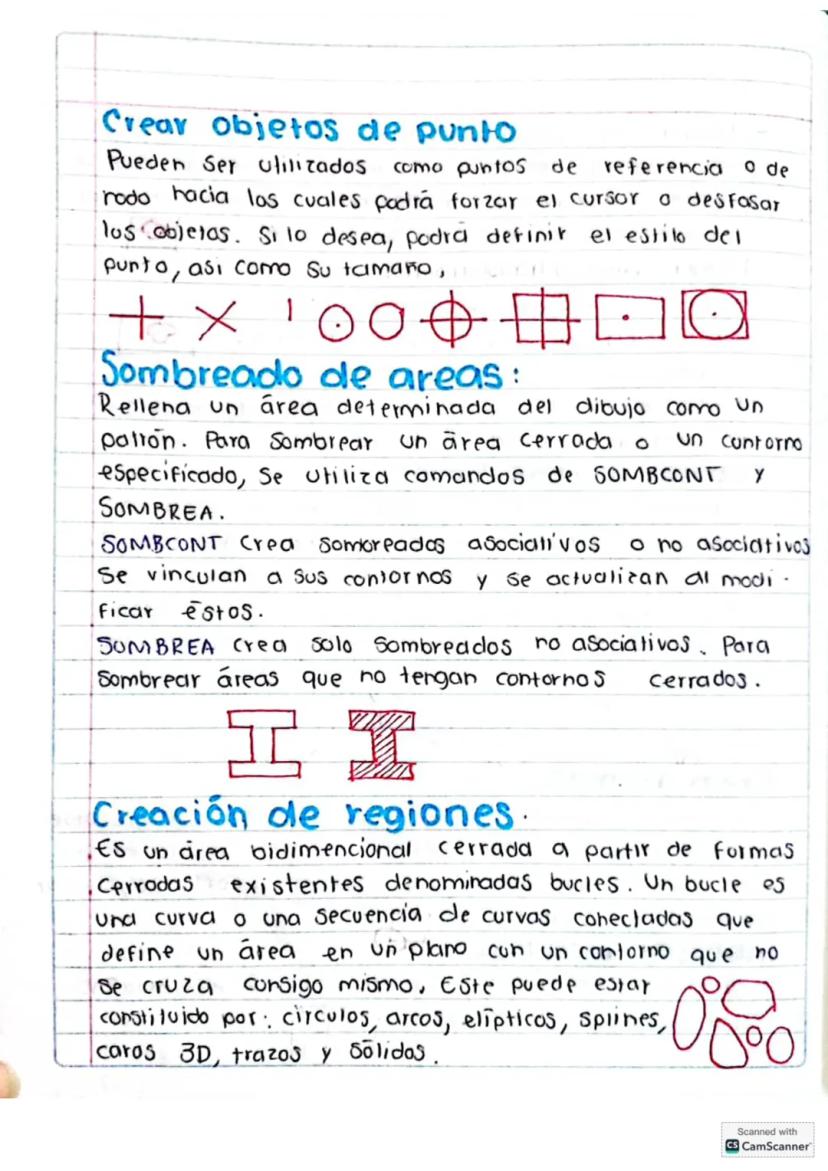 Crear objetos de punto
Pueden ser utilizados como puntos de referencia o de
nodo hacia los cuales podrá forzar el cursor o desfasar
los objetos. Si lo desea, podra definir el estilo del
punto, asi como su tamaño,
Sombreado de areas:
Rellena un área determinada del dibujo como un
patrón. Para sombrear un área cerrada o un contorno
especificado, se utiliza comandos de SOMBCONT y
SOMBREA.
SOMBCONT crea sombreados asociativos o no asociativos
se vinculan a sus contornos y se actualizan al modi-
ficar éstos.
SOMBREA crea solo sombreados no asociativos. Para
sombrear áreas que no tengan contornos cerrados.
Creación de regiones.
Es un área bidimencional cerrada a partir de formas
cerradas existentes denominadas bucles. Un bucle es
una curva o una secuencia de curvas conectadas que
define un área en un plano con un contorno que no
se cruza consigo mismo. Este puede estar
constituido por: circulos, arcos, elípticos, splines,
caras 3D, trazos y sólidos.
Scanned with
CS CamScanner